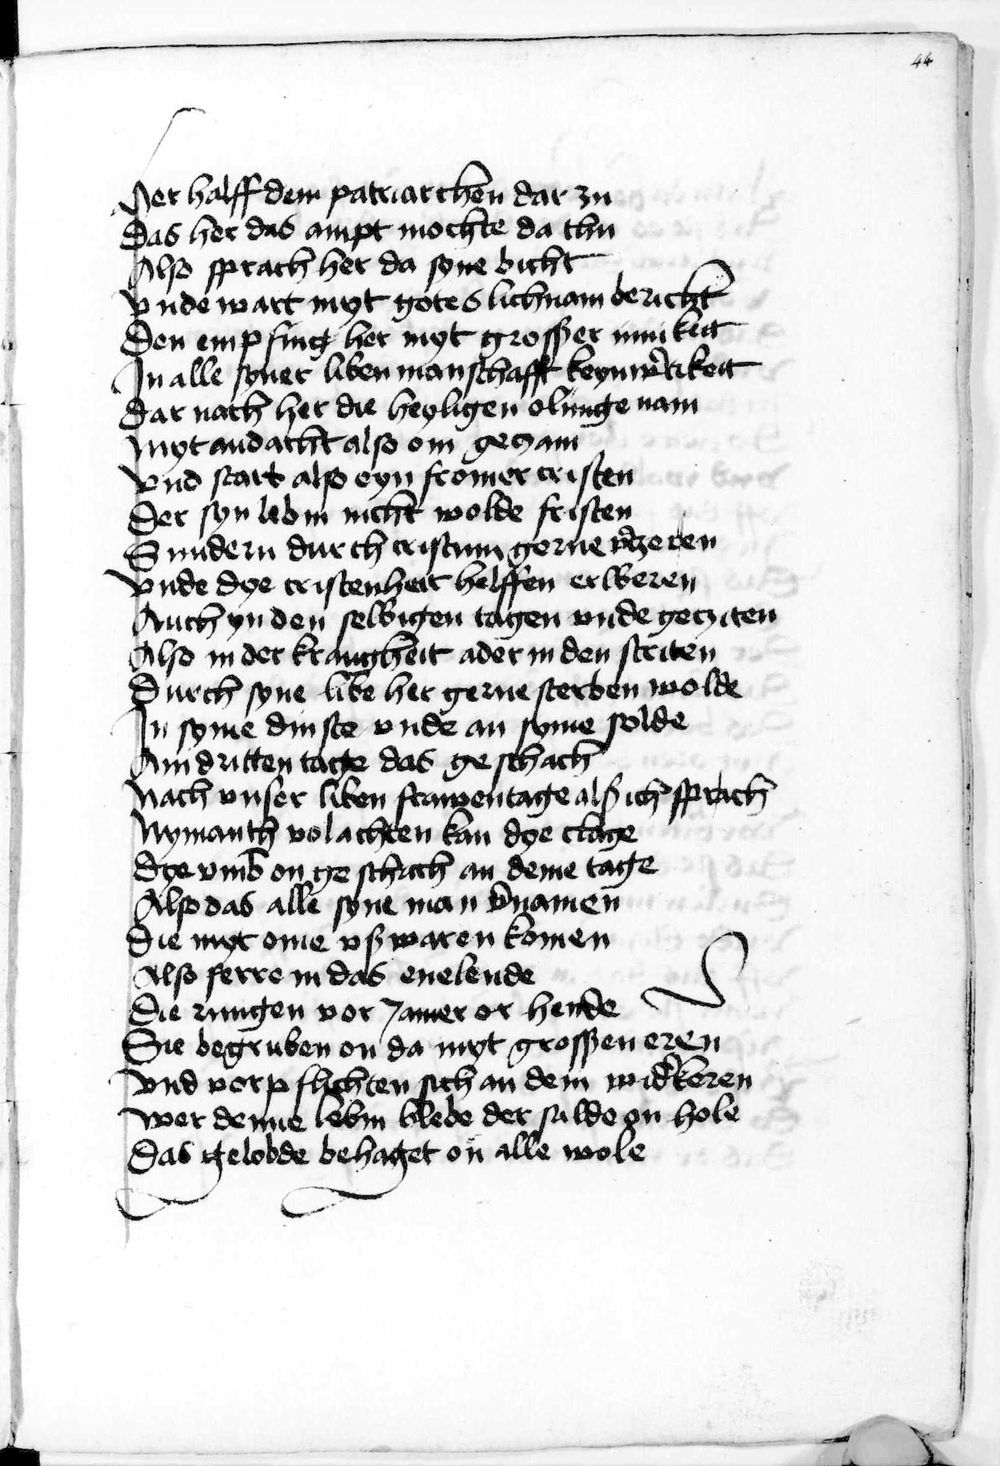 44
Her halff dem patriarchen dar zu
Das her das ampt mochte da thu
Also sprach her da syne bicht
Vnde wart myt gotes lichnam bericht
Den empfing her myt grosser innikeit
In alle syner liben manschafft keynw̉tikeit
Dar nach her die heyligen olunge nam
Myt andacht also om geczam
Vnd starb also eyn fromer cristen
Der syn lebin nicht wolde fristen
Sundern durch cristum gerne v̉zeren
Vnde dye cristenheit helffen erweren
Auch yn den selbigen tagen vnde gecziten
Also in der krangheit ader in den striten
Durch syne libe her gerne sterben wolde
In syme dinste vnde an syme solde
Am dritten tage das geschach
Nach vnser liben frawen tage alß ich sprach
Nymanth volachten kan dye clage
Dye vmb on geschach an deme tage
Also das alle syne man v̉namen
Die myt ome vß waren komen
Also ferre in das enelende
Die rungen vor Jamer or hende
Sie begruben on da myt grossen eren
Vnd vorpflichten sich an dem wid̉keren
Wer denne lebin blebe der sulde on hole
Das gelobde behaget on alle wole